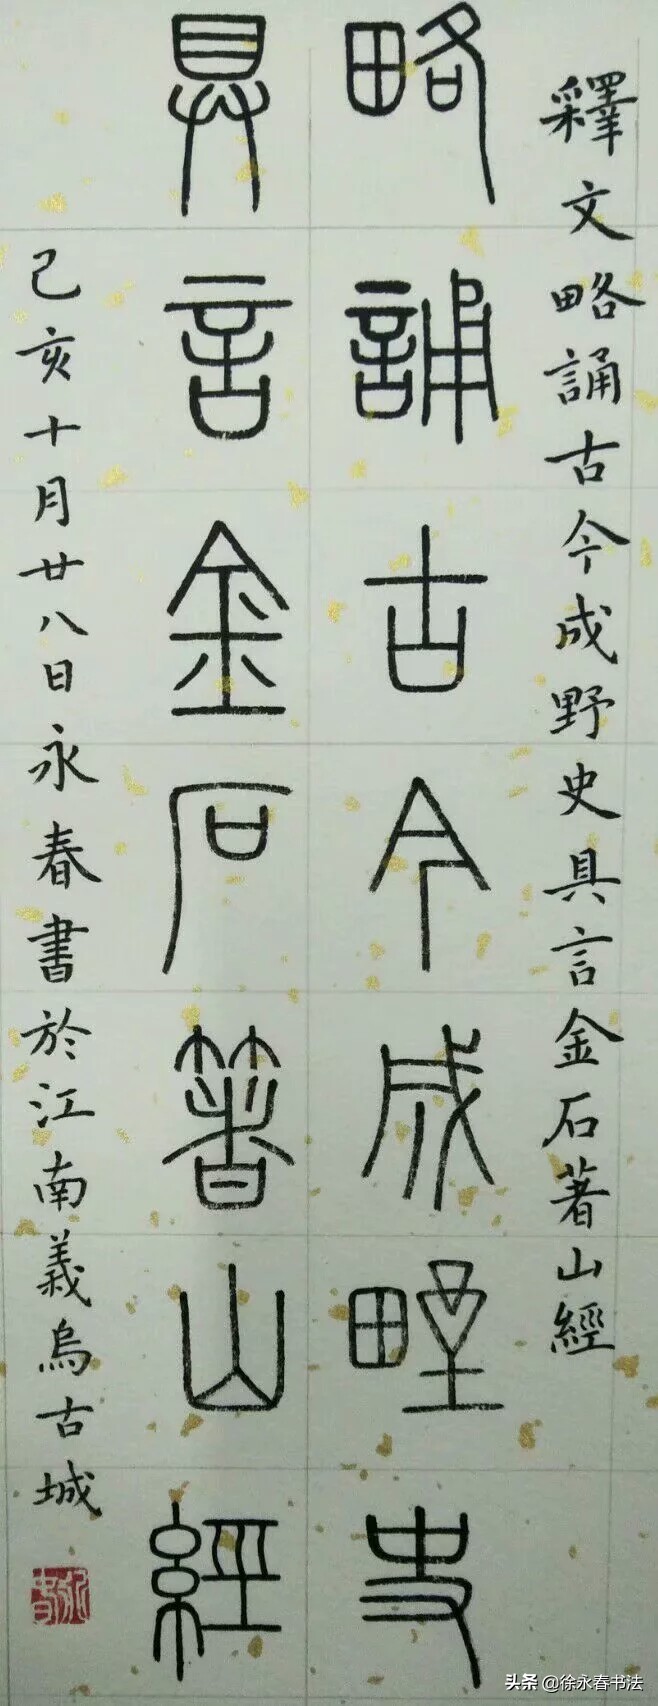 釋文略誦古今成野史具言金石著山經
略誦古今成野史
具言金石著山經
己亥十月廿八日永春書於江南義烏古城
头条@徐永春书法